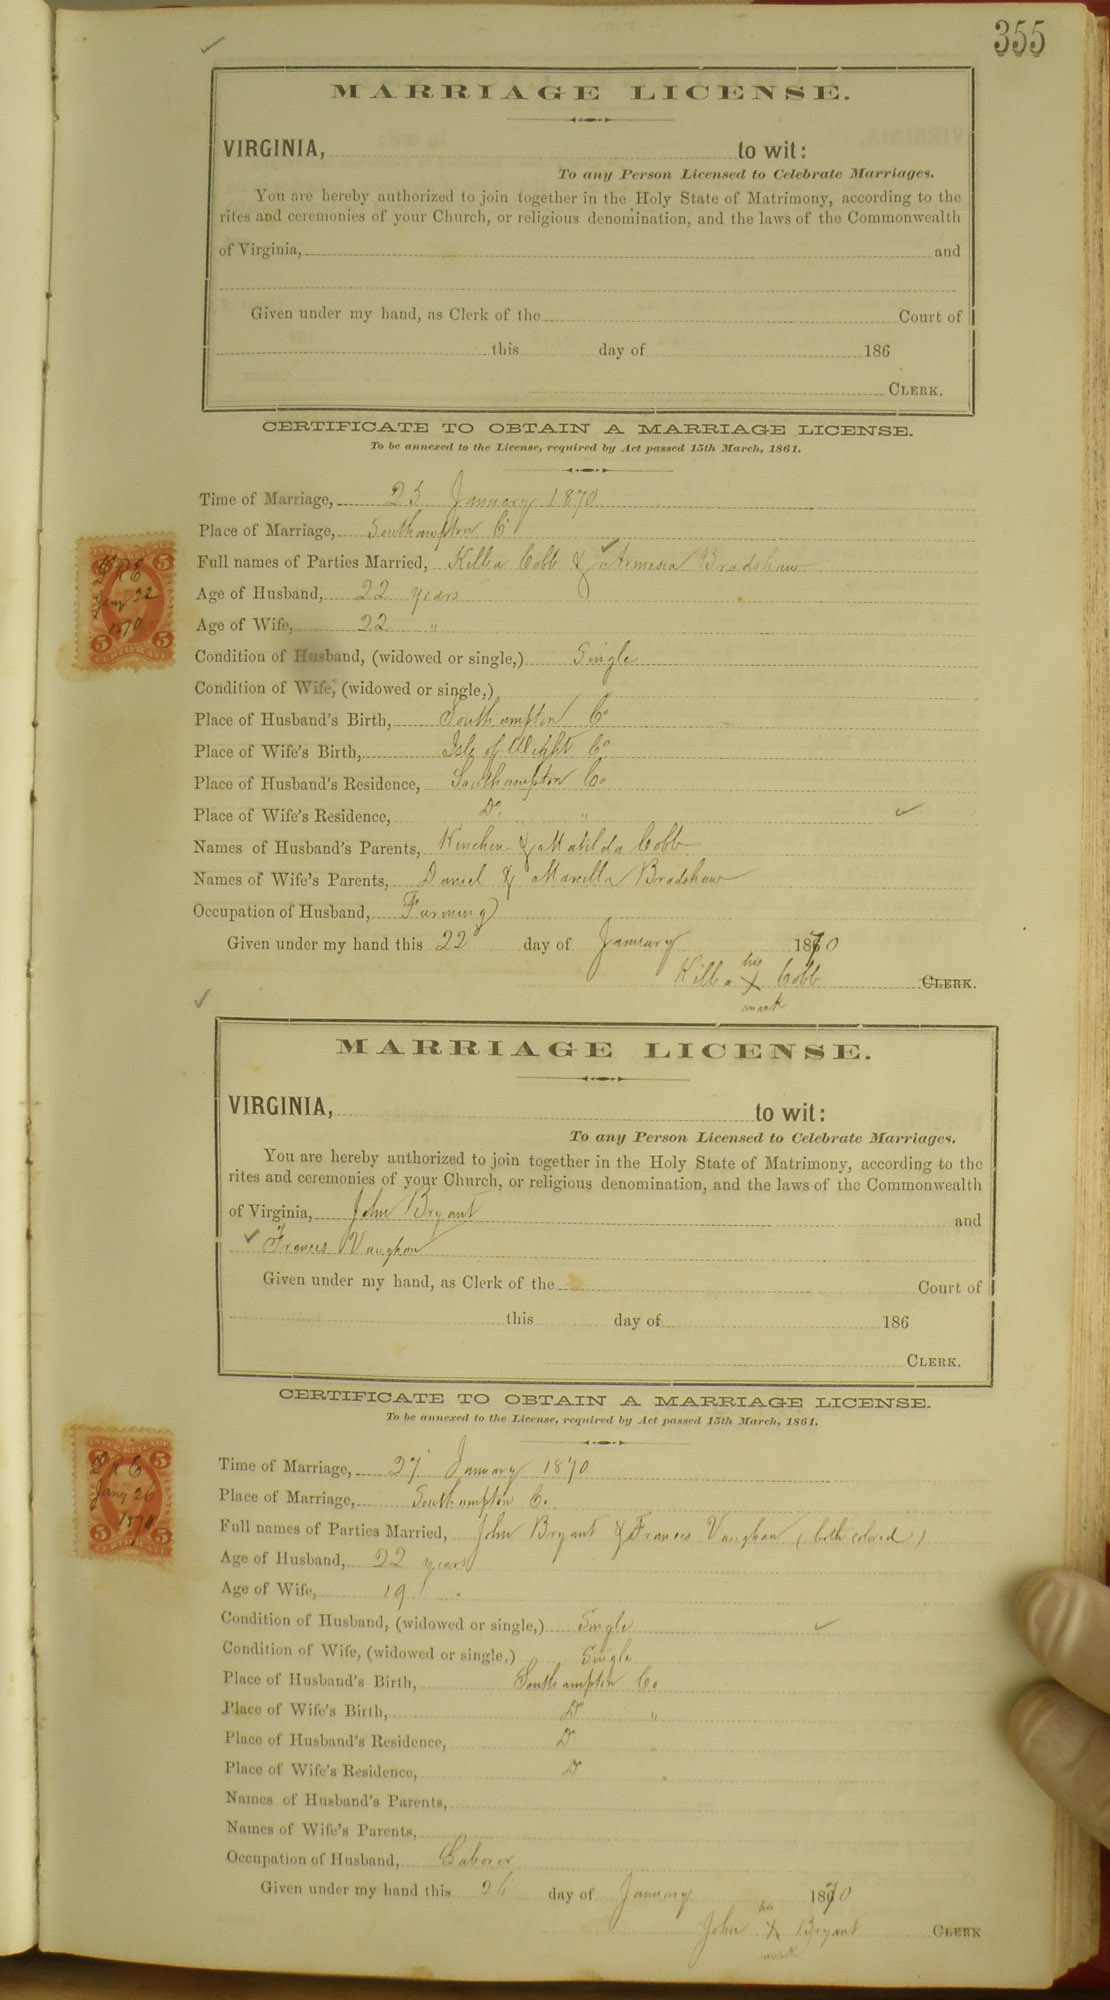 355
MARRIAGE LICENSE.
VIRGINIA, to wit:
To any Person Licensed to Celebrate Marriages.
You are hereby authorized to join together in the Holy State of Matrimony, according to the
rites and ceremonies of your Church, or religious denomination, and the laws of the Commonwealth
of Virginia, and
Given under my hand, as Clerk of the Court of
this day of 186
CLERK.
CERTIFICATE TO OBTAIN A MARRIAGE LICENSE.
To be annexed to the License, required by Act passed 15th March, 1861.
Time of Marriage, 25 January 1870
Place of Marriage, Southampton Co
Full names of Parties Married, Killa Cobb & Armesia Bradshaw
Age of Husband, 22 years
Age of Wife, 22 "
Condition of Husband, (widowed or single,) Single
Condition of Wife, (widowed or single,)
Place of Husband's Birth, Southampton Co
Place of Wife's Birth, Isle of Wight Co
Place of Husband's Residence, Southampton Co
Place of Wife's Residence, Do "
Names of Husband's Parents, Kinchen & Matilda Cobb
Names of Wife's Parents, Daniel & Marcella Bradshaw
Occupation of Husband, Farming
Given under my hand this 22 day of January 1870
Killa his X mark Cobb CLERK.
5 5
R E
Jany 22
1870
5 5
CERTIFICATE
MARRIAGE LICENSE.
VIRGINIA, to wit:
To any Person Licensed to Celebrate Marriages.
You are hereby authorized to join together in the Holy State of Matrimony, according to the
rites and ceremonies of your Church, or religious denomination, and the laws of the Commonwealth
of Virginia, John Bryant and
Frances Vaughan
Given under my hand, as Clerk of the Court of
this day of 186
CLERK.
CERTIFICATE TO OBTAIN A MARRIAGE LICENSE.
To be annexed to the License, required by Act passed 15th March, 1861.
Time of Marriage, 27 January 1870
Place of Marriage, Southampton Co.
Full names of Parties Married, John Bryant & Frances Vaughan (both colored)
Age of Husband, 22 years
Age of Wife, 19 "
Condition of Husband, (widowed or single,) Single
Condition of Wife, (widowed or single,) Single
Place of Husband's Birth, Southampton Co
Place of Wife's Birth, Do "
Place of Husband's Residence, Do "
Place of Wife's Residence, Do "
Names of Husband's Parents,
Names of Wife's Parents,
Occupation of Husband, Laborer
Given under my hand this 26 day of January 1870
John his X mark Bryant CLERK
INTER. REVENUE
5 5
R E
Jany 26
1870
5 5
CERTIFICATE